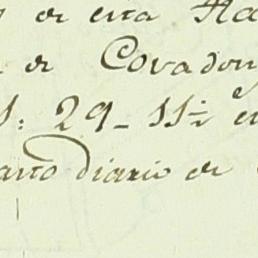 de esta Ha
de Covadon
S: 29- 11½ e
arto diario de